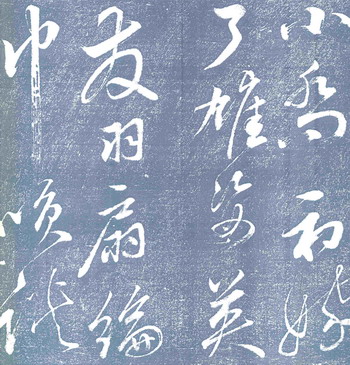 小喬初嫁
了雄姿英
發羽扇綸
巾笑談